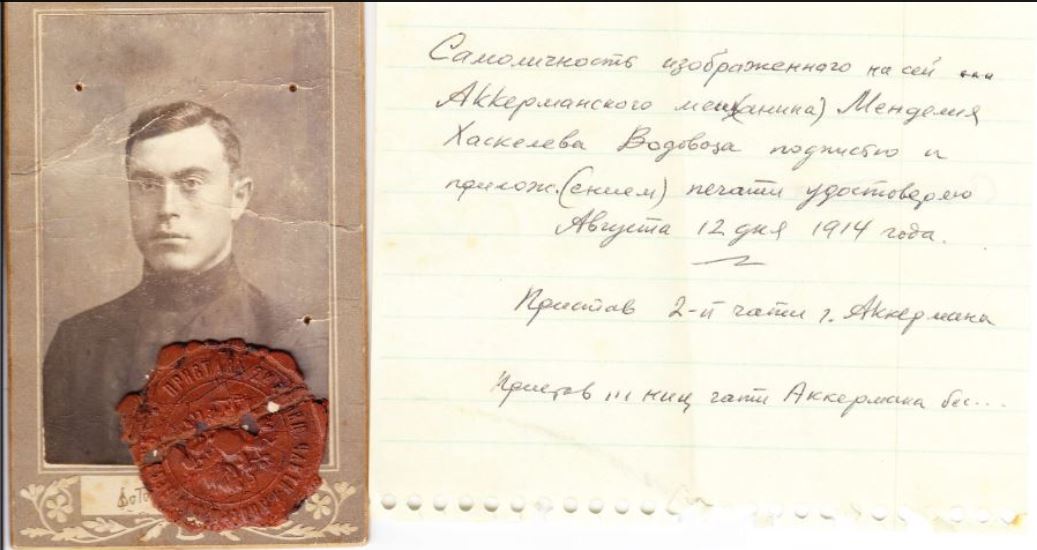 ПРИСТАВЪ 2
Фото
Самоличность изображенного на сей
Аккерманского мещ(анина) Менделия
Хаскелева Водовоза подписью и
прилож.(ением) печати удостоверяю
Августа 12 дня 1914 года.
Пристав 2-й части г. Аккермана
Пристав ... части Аккермана бес...